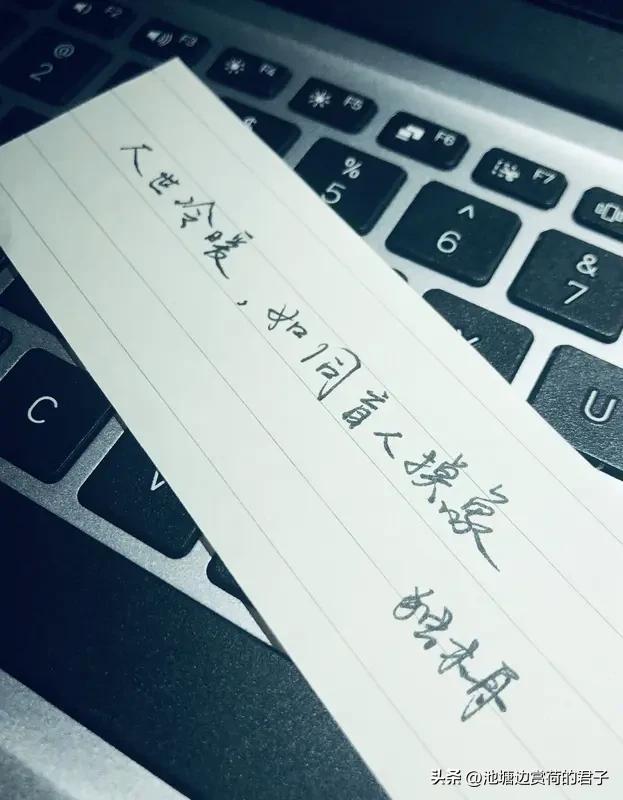 F2
F3
F4
F5
F6
F7
@
2
%
5
^
6
&
7
U
C
V
人世冷暖，如同盲人摸象
头条 @池塘边赏荷的君子